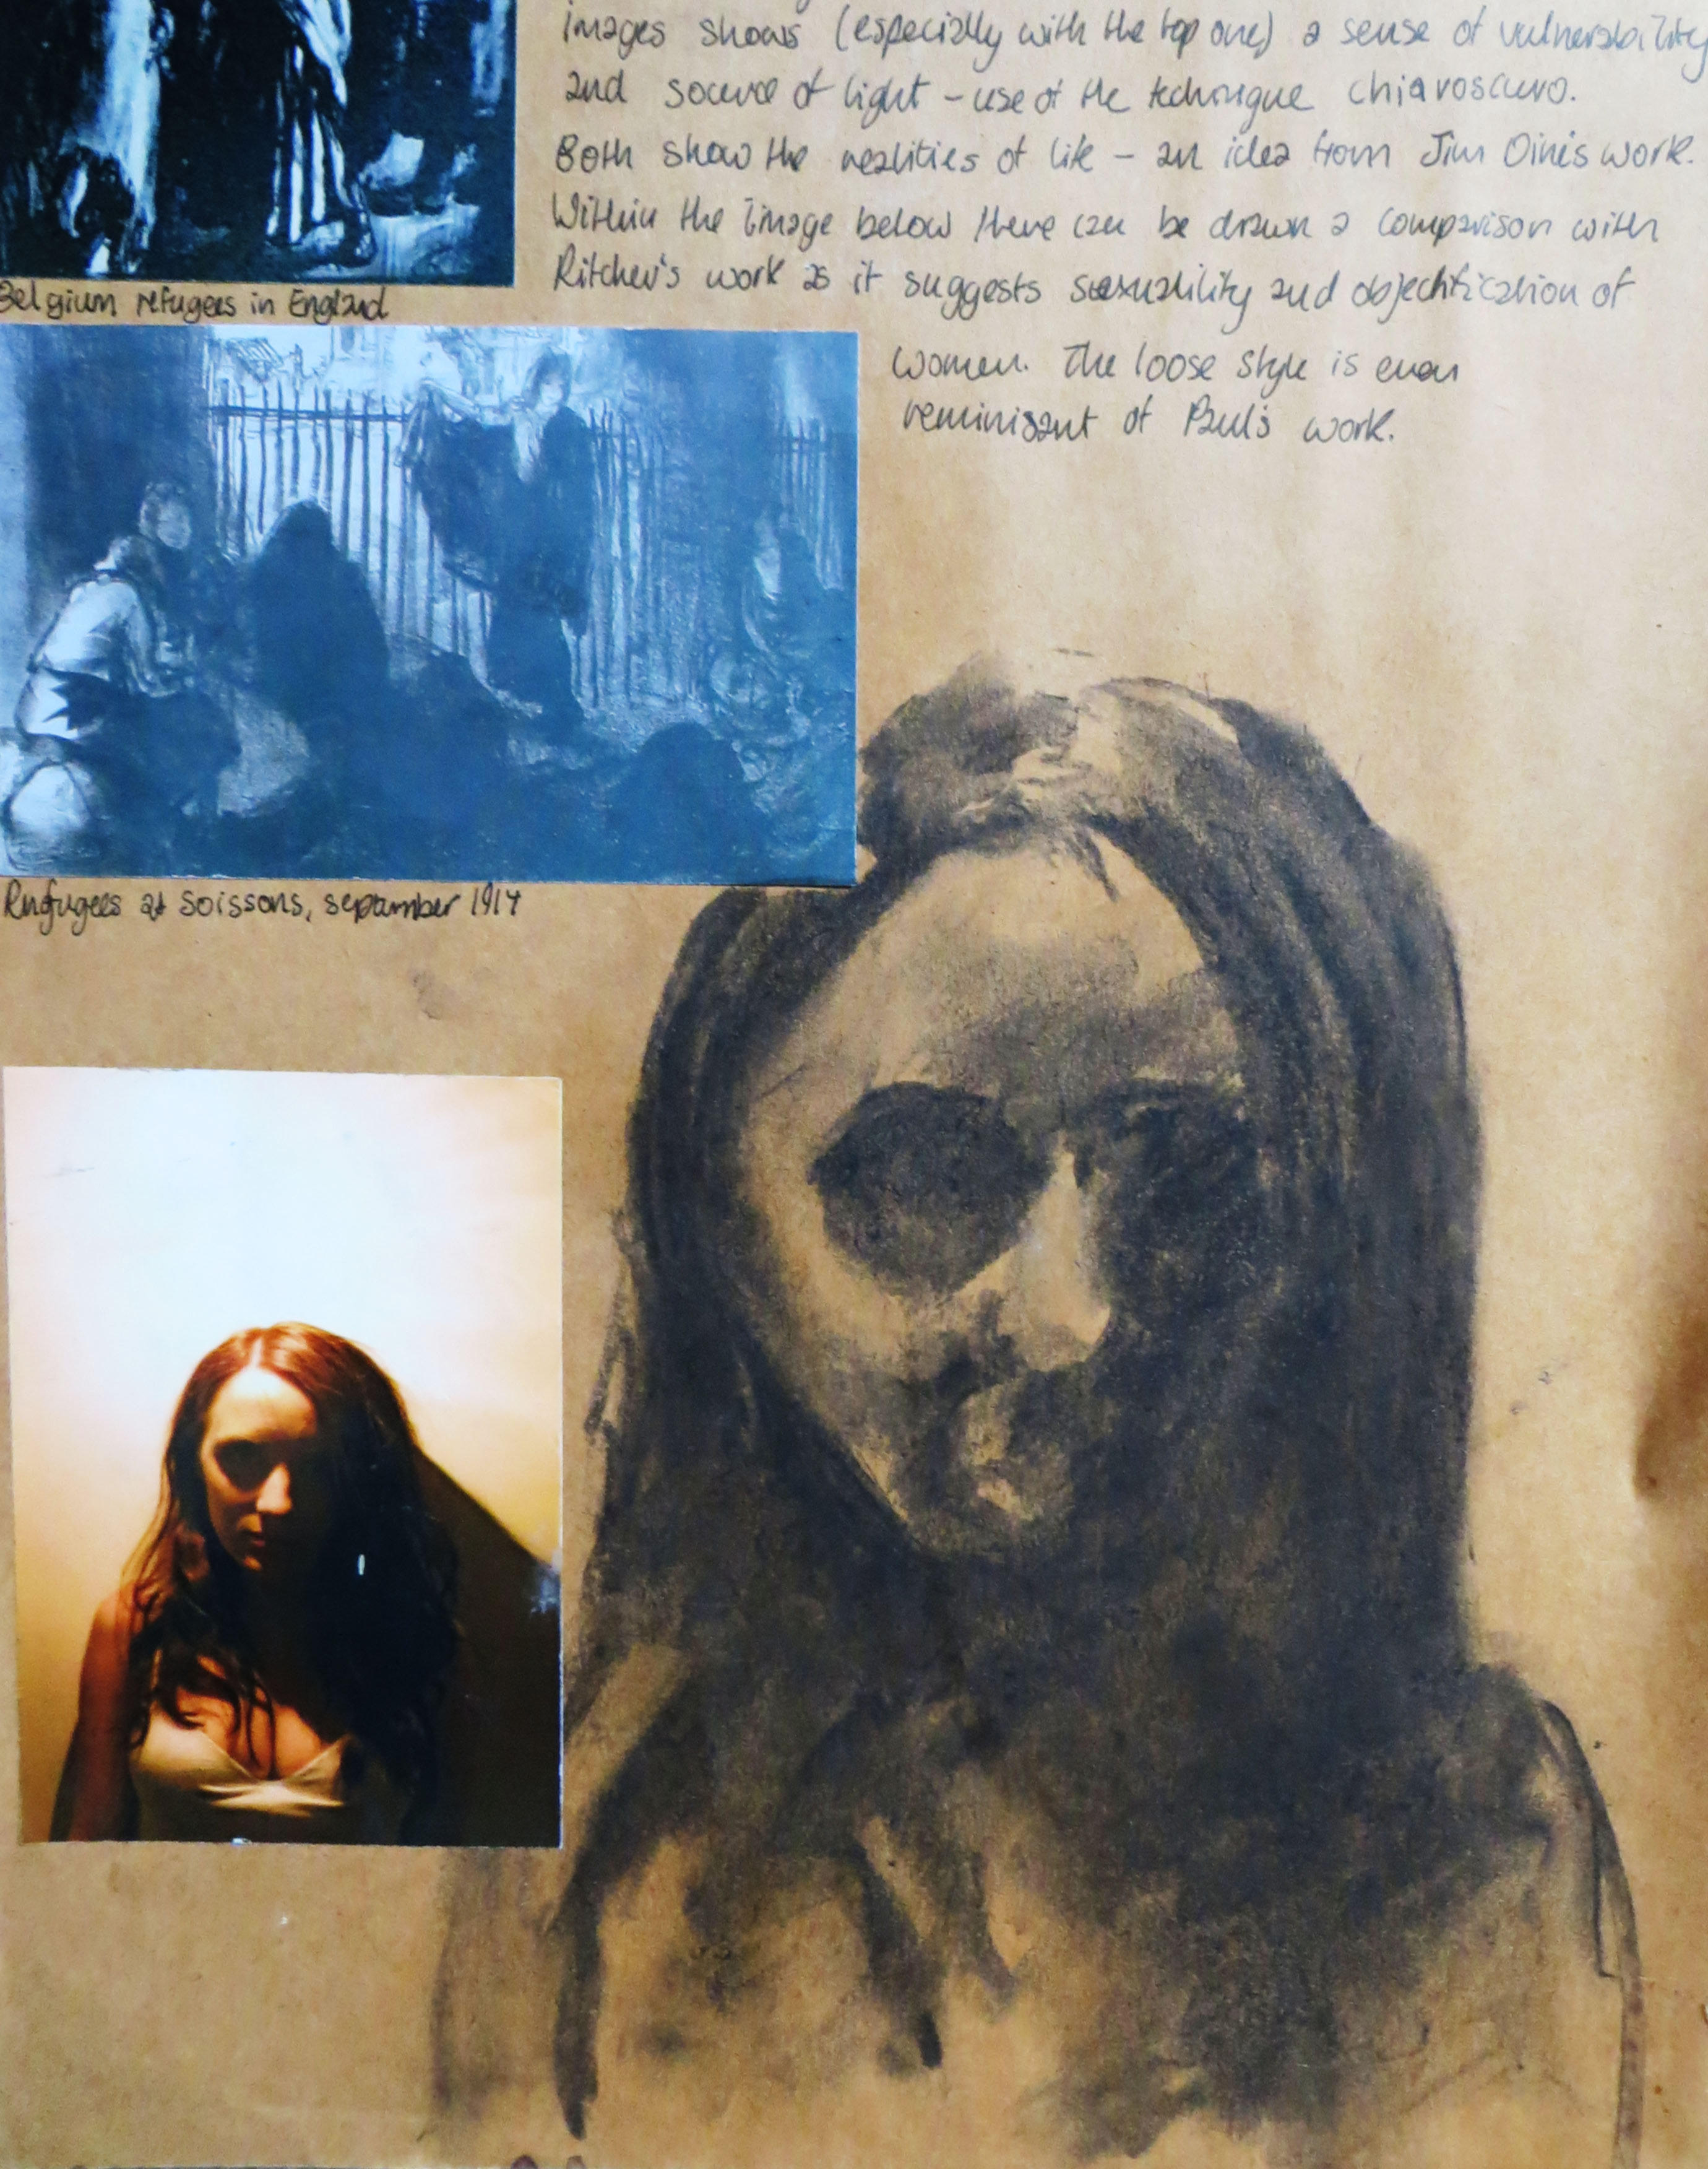 images shows (especially with the top one) a sense of vulnerability
and source of light - use of the technique chiaroscuro.
Both show the realities of life - an idea from Jim Dine's work.
Within the image below there can be drawn a comparison with
Ritcher's work as it suggests sexuality and objectification of
women. The loose style is even
reminisant of Paul's work.
Belgium refugees in England
Refugees at Soissons, september 1914